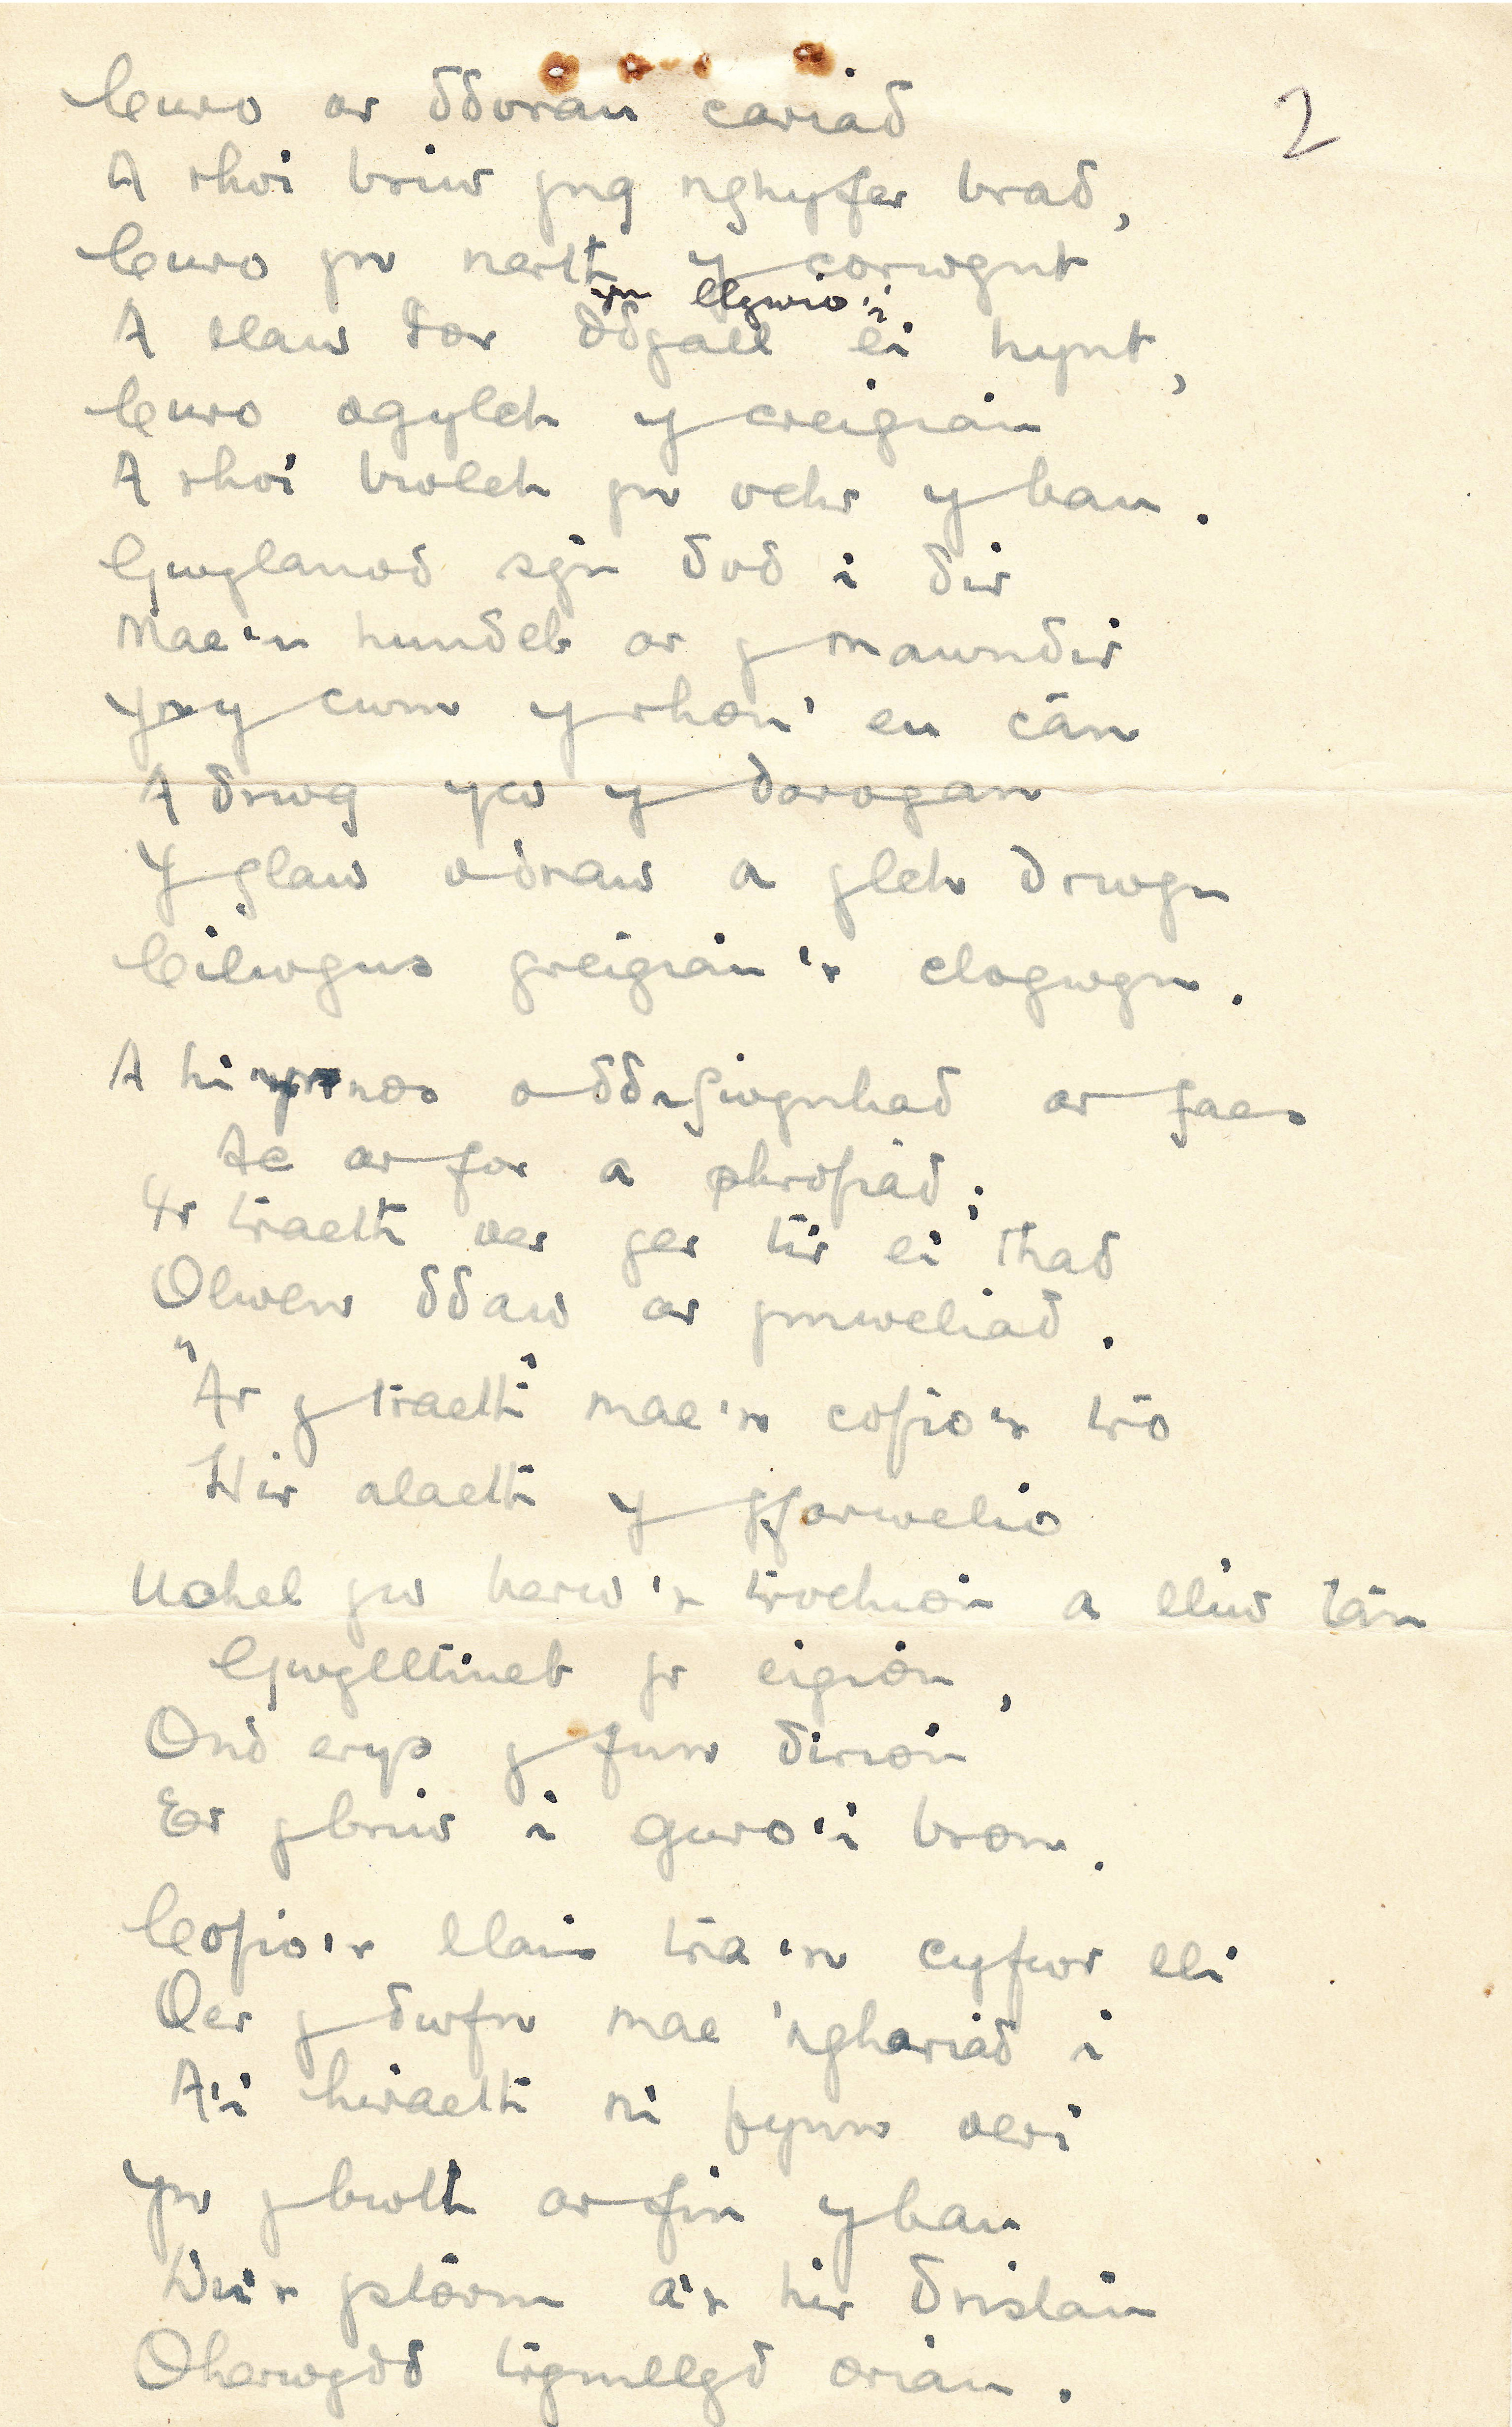 2
Curo ar ddorau cariad
A rhoi briw yng nghyfer brad,
Curo yn nerth y corwynt
A llaw dor ddyall ei hynt,
yn llywio'i
Curo ogylch y creigiau
A rhoi broch yn ochr y bau.
Gwylanod sy'n dod i dir
Mae'n hundeb ar y mawndir
Yn y cwm y rhon' eu cân
A drwg yw y darogan
Y glaw odraw a ylch drwyn
Cilwgus greigiau'r clogwyn.
A hi'n nos o ddifwynhad ar faes
Ac ar for a phrofiad;
Ir traeth oer ger tir ei thad
Olwen ddaw ar ymweliad.
"Ar y traeth" mae'n cofio'r tro
Wir alaeth y ffarwelio
Uchel yw berw'r trochion a lliw tân
Gwylltineb yr eigion,
Ond erys y fun dirion
Er y briw i guro'i bron.
Cofio'r llais tra'n cyfwr lli
Oer y dwfn mae 'nghariad i
A'i hiraeth ni fynn oeri
Yn y bwth ar fin y bau
Du'r ystorm a'r hir dristau
Oherwydd trymllyd oriau.